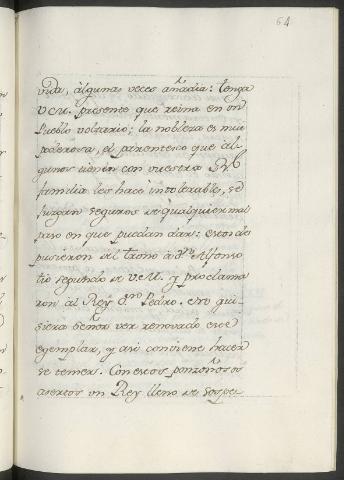 64
vida, algunas veces añadia: tenga
V.M. presente que reina en un
Pueblo voltario; la nobleza es mui
poderosa, el parentesco que al-
gunos tienen con vuestra Rl.
familia les hace intolerable, se
juzgan seguros de qualquier mal
paso en que puedan dar: estos de
pusieron del trono a Dn. Alfonso
tio segundo de V.M. y proclama
ron al Rey Dn. Pedro. eso qui-
siera Señor ver renovado este
egemplar, y asi conviene hacer
se temer. Con estos ponzoñosos
asertos un Rey lleno de sospe